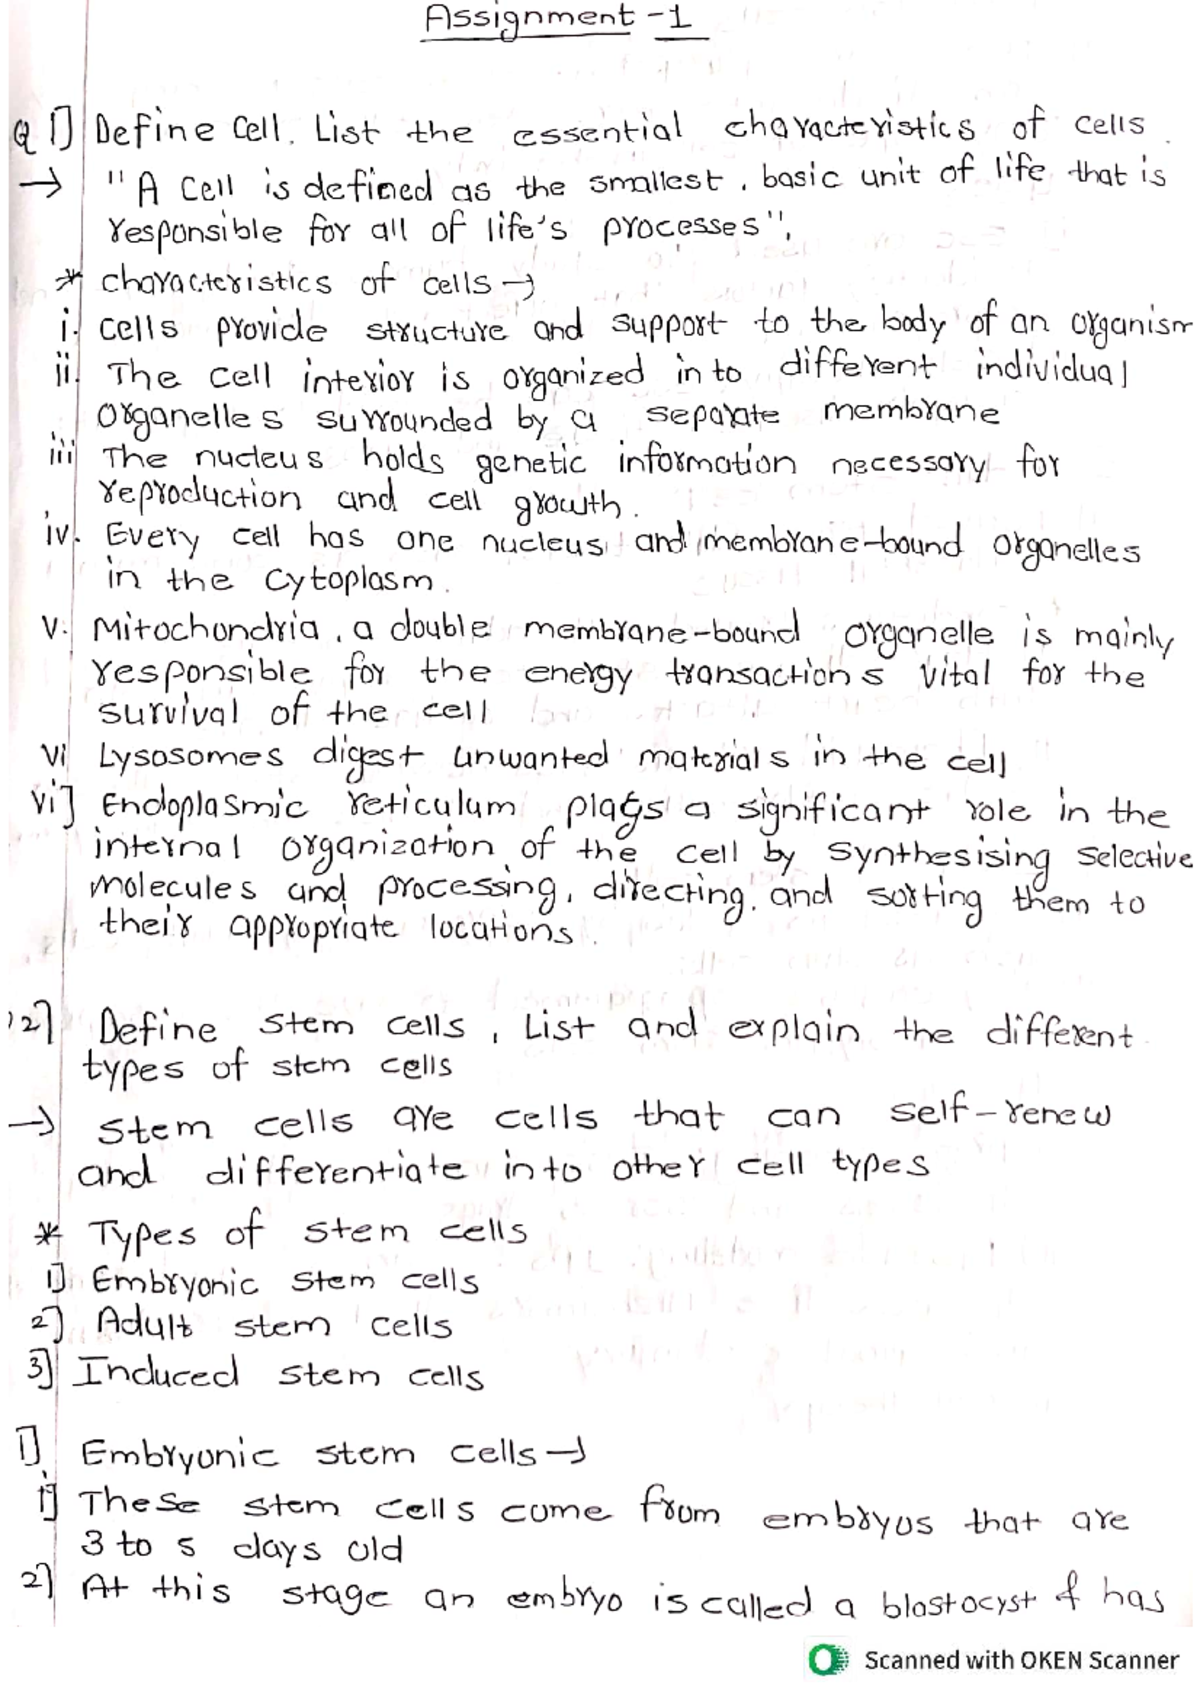 Assignment -1
Q 1] Define Cell. List the essential characteristics of cells.
→ "A Cell is defined as the smallest, basic unit of life that is
responsible for all of life's processes".
* characteristics of cells →
i. cells provide structure and support to the body of an organism
ii. The cell interior is organized in to different individual
organelles surrounded by a separate membrane
iii The nucleus holds genetic information necessary for
reproduction and cell growth.
iv. Every cell has one nucleus and membrane-bound organelles
in the cytoplasm.
v. Mitochondria, a double membrane-bound organelle is mainly
responsible for the energy transactions vital for the
survival of the cell
vi Lysosomes digest unwanted materials in the cell
vi] Endoplasmic reticulum plays a significant role in the
internal organization of the cell by synthesising selective
molecules and processing, directing, and sorting them to
their appropriate locations.
2] Define stem cells, List and explain the different
types of stem cells
→ stem cells are cells that can self-renew
and differentiate in to other cell types
* Types of stem cells
1] Embryonic stem cells
2] Adult stem cells
3] Induced stem cells
1] Embryonic stem cells →
1] These stem cells come from embryos that are
3 to 5 days old
2] At this stage an embryo is called a blastocyst & has
Scanned with OKEN Scanner